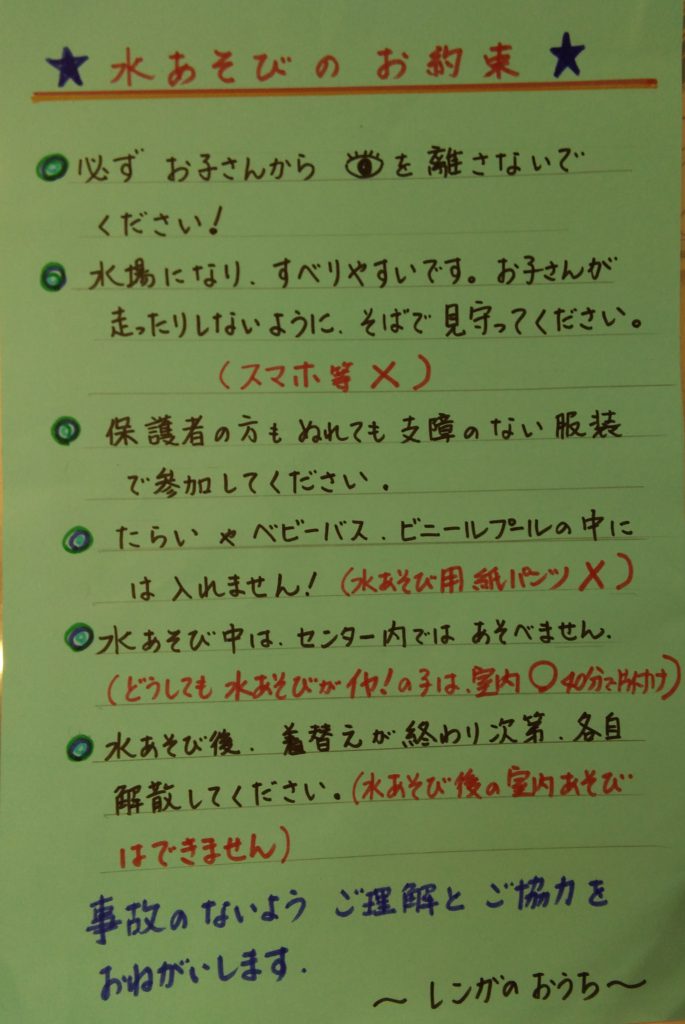 ★ 水あそびの お約束 ★
必ず お子さんから 👁を離さないで
ください!
水場になり、すべりやすいです。お子さんが
走ったりしないように、そばで見守ってください。
(スマホ等 ×)
保護者の方も ぬれても支障のない服装
で参加してください。
たらいやベビーバス、ビニールプールの中に
は入れません! (水あそび用紙パンツ ×)
水あそび中は、センター内ではあそべません。
(どうしても水あそびがイヤ!の子は、室内〇 40分で片付け)
水あそび後、着替えが終わり次第、各自
解散してください。(水あそび後の室内あそび
はできません)
事故のないよう ご理解と ご協力を
おねがいします。
~レンガのおうち~